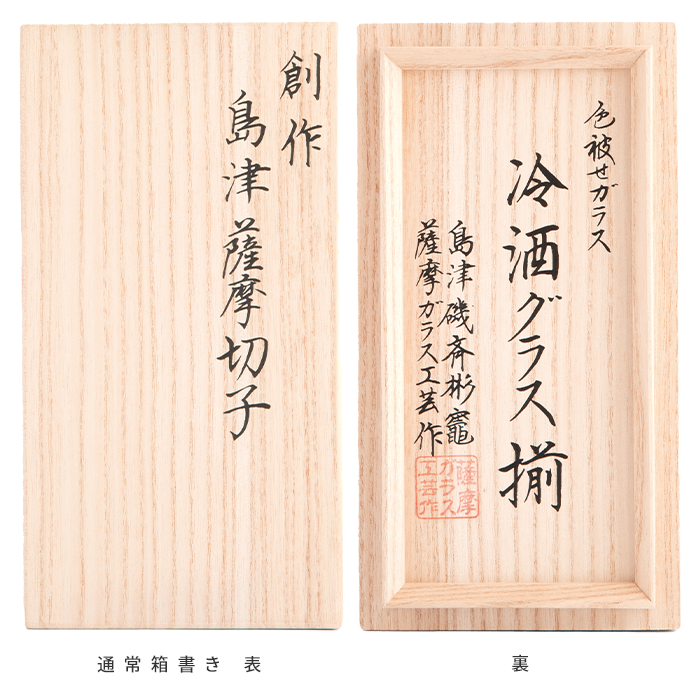 創作
島津薩摩切子
色被せガラス
冷酒グラス揃
島津磯斉彬竈
薩摩ガラス工芸作
薩摩
ガラス
工芸作
通常箱書き 表
裏